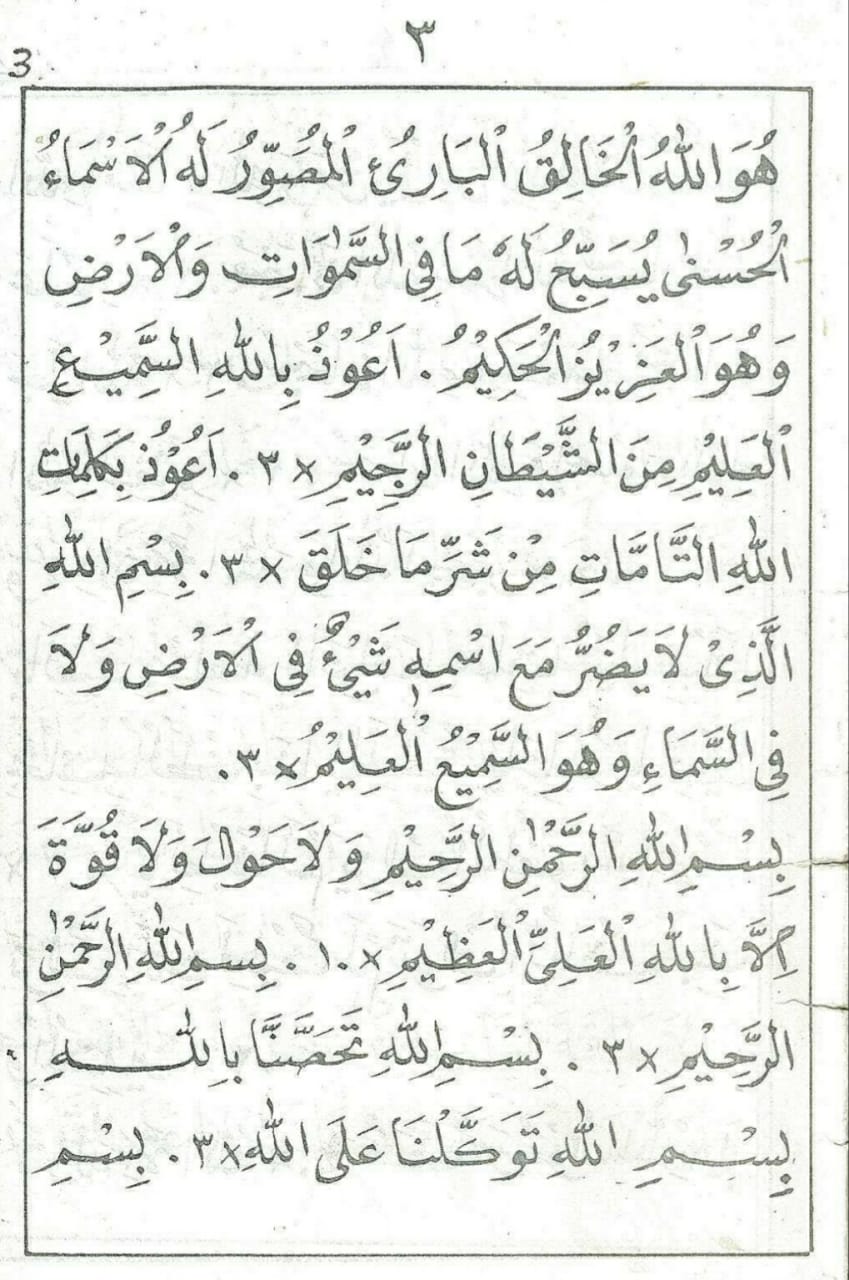 ٣
3
هُوَ اللهُ الْخَالِقُ الْبَارِئُ الْمُصَوِّرُ لَهُ الْاَسْمَاءُ
الْحُسْنٰى يُسَبِّحُ لَهٗ مَا فِى السَّمٰوَاتِ وَالْاَرْضِ
وَهُوَ الْعَزِيْزُ الْحَكِيْمُ . اَعُوْذُ بِاللهِ السَّمِيْعِ
الْعَلِيْمِ مِنَ الشَّيْطَانِ الرَّجِيْمِ × ٣ . اَعُوْذُ بِكَلِمَاتِ
اللهِ التَّامَّاتِ مِنْ شَرِّ مَا خَلَقَ × ٣ . بِسْمِ اللهِ
الَّذِىْ لَا يَضُرُّ مَعَ اسْمِهٖ شَيْئٌ فِى الْاَرْضِ وَلَا
فِى السَّمَاءِ وَهُوَ السَّمِيْعُ الْعَلِيْمُ × ٣ .
بِسْمِ اللهِ الرَّحْمٰنِ الرَّحِيْمِ وَلَا حَوْلَ وَلَا قُوَّةَ
اِلَّا بِاللهِ الْعَلِىِّ الْعَظِيْمِ × ١٠ . بِسْمِ اللهِ الرَّحْمٰنِ
الرَّحِيْمِ × ٣ . بِسْمِ اللهِ تَحَصَّنَّا بِاللهِ
بِسْمِ اللهِ تَوَكَّلْنَا عَلَى اللهِ × ٣ . بِسْمِ